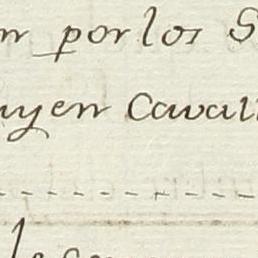 n por los S
uyen Cavall